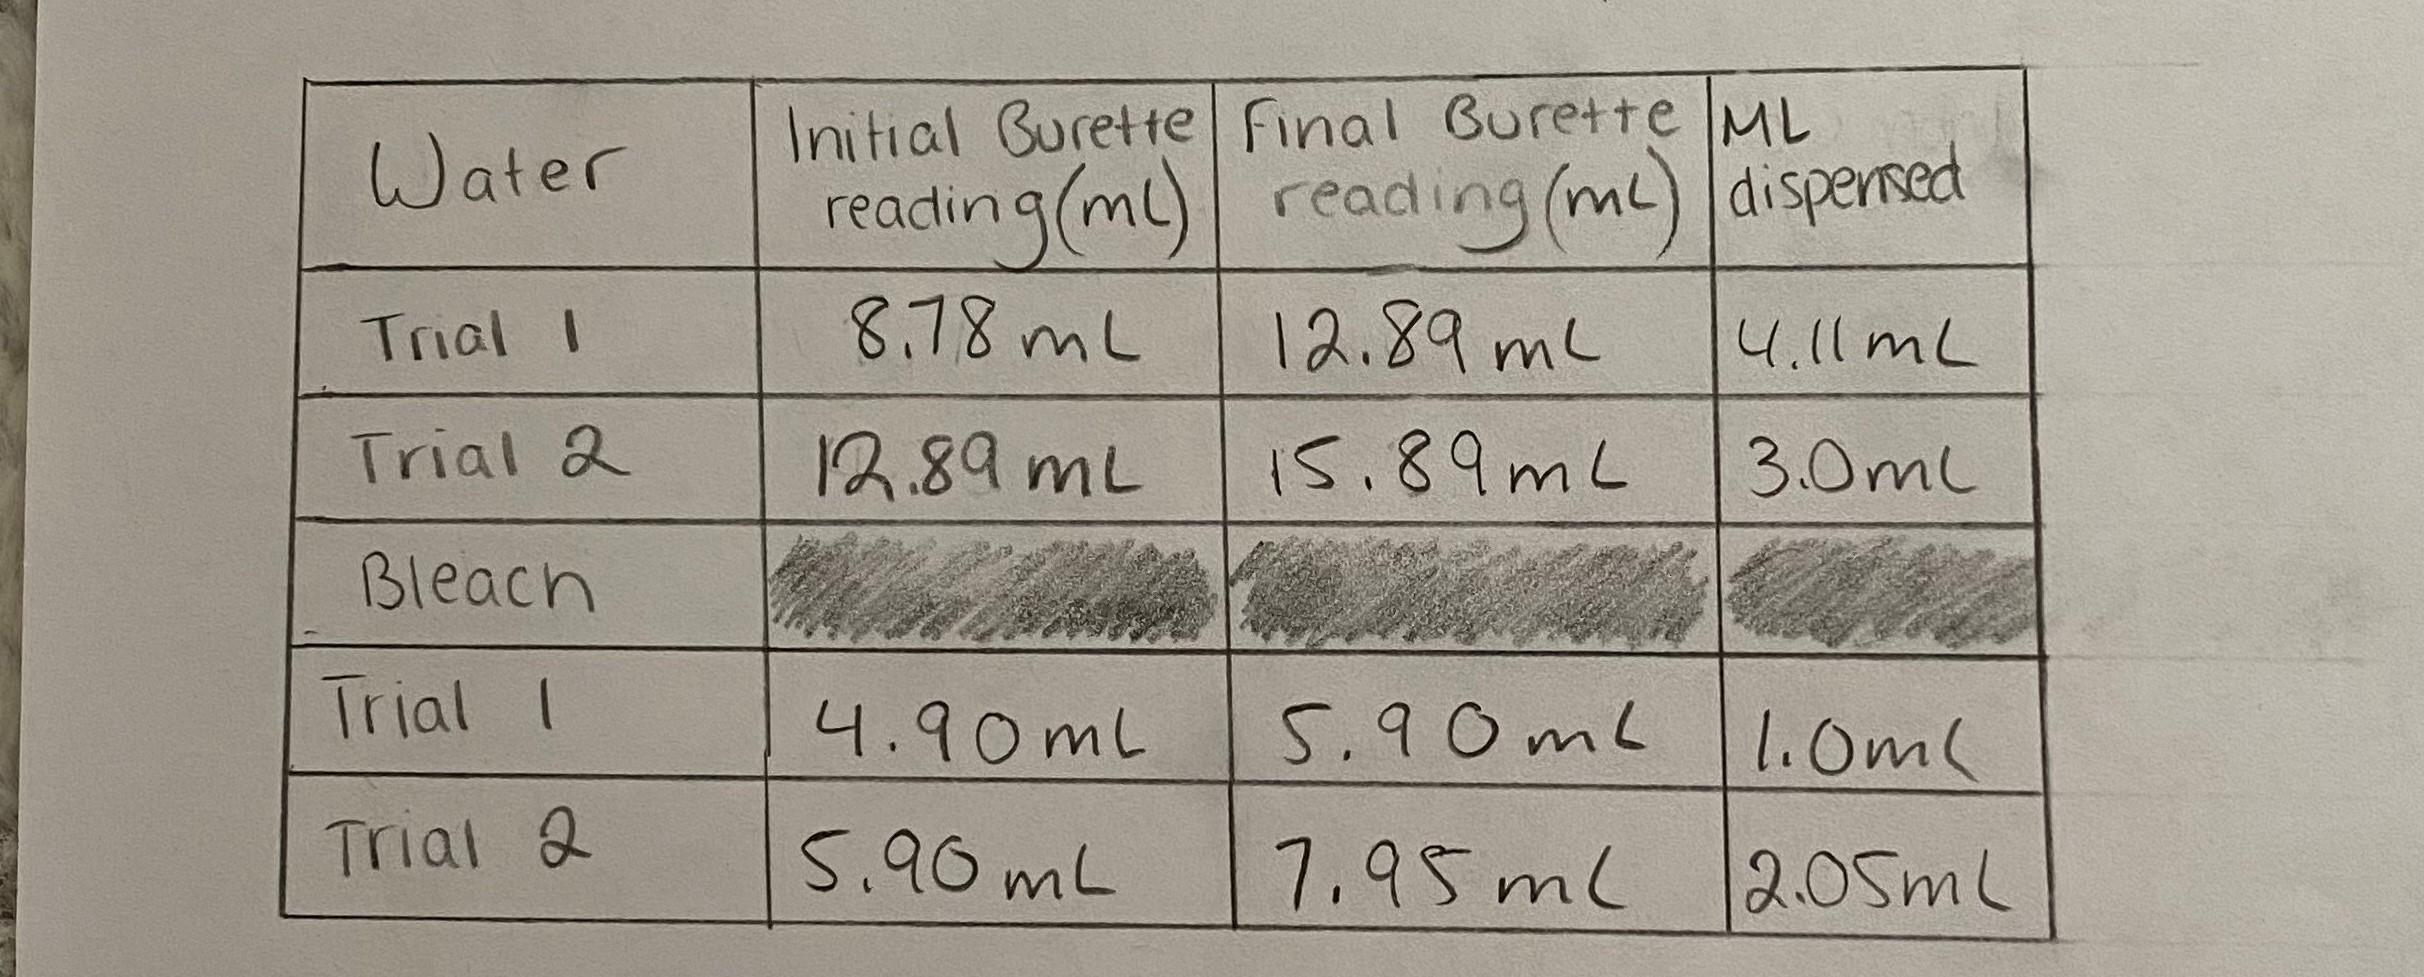 Water
Initial Burette
reading (mL)
Final Burette
reading (mL)
ML
dispensed
Trial 1
8.78 mL
12.89 mL
4.11 mL
Trial 2
12.89 mL
15.89 mL
3.0 mL
Bleach
Trial 1
4.90 mL
5.90 mL
1.0 mL
Trial 2
5.90 mL
7.95 mL
2.05 mL